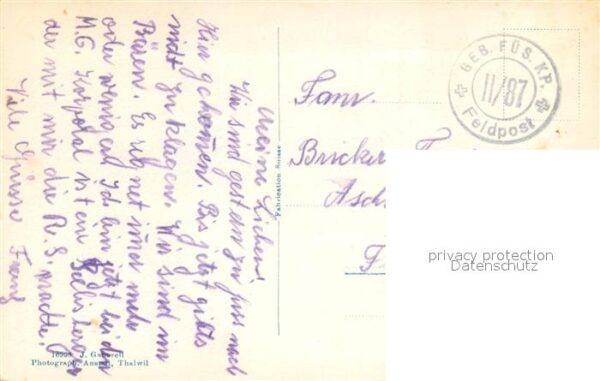 Meine Lieben!
Wir sind gestern zu fuss nach
Hier gekommen. Bis jetzt gibts
nicht zu klagen. Wir sind im
Büren. Es regnet immer mehr
oder weniger. Ich bin jetzt bei den
M.G. Korporal ist ein Seelisberger
der mit mir die R.S. machte.
Viele Grüsse Franz
Fam.
Bricker
Asch
F
GEB. FÜS. KP.
II/87
Feldpost
Fabrication Suisse
J. Gaberell
Photograph. Anstalt, Thalwil
privacy protection
Datenschutz